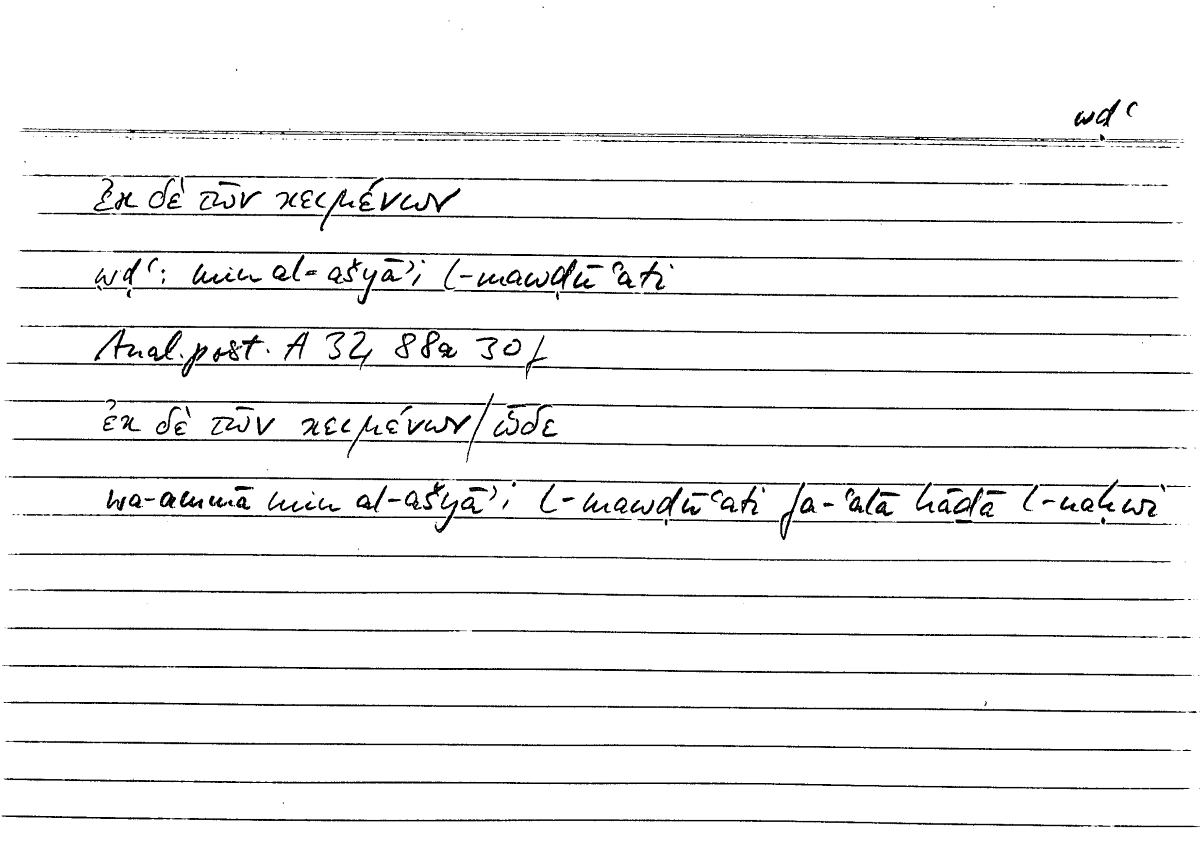 wḍʿ
ἐκ δὲ τῶν κειμένων
wḍʿ: min al-ašyāʾi l-mawḍūʿati
Anal. post. A 32, 88a 30f
ἐκ δὲ τῶν κειμένων/ὧδε
wa-ammā min al-ašyāʾi l-mawḍūʿati fa-ʿalā hāḏā l-naḥwi